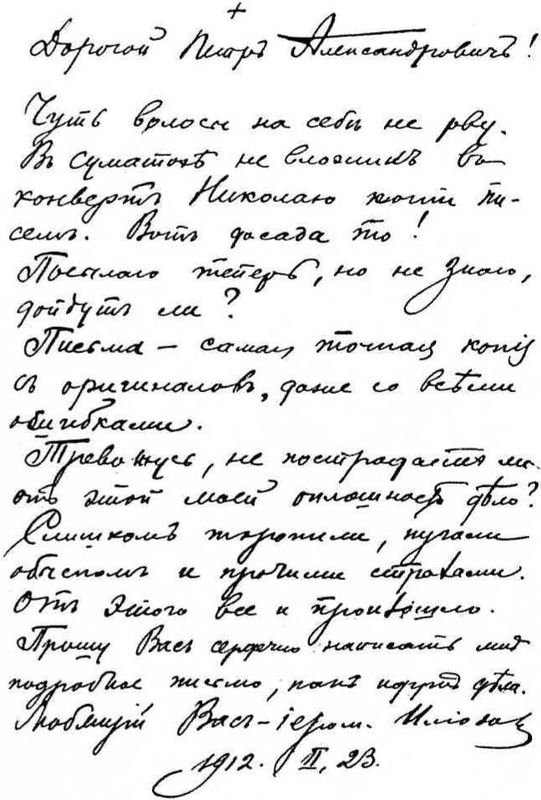 +
Дорогой Петръ Александровичъ!
Чуть волосы на себѣ не рву.
Въ суматохѣ не вложилъ въ
конвертъ Николаю копіи пи-
семъ. Вотъ досада то!
Посылаю теперь, но не знаю,
дойдутъ ли?
Письма – самая точная копія
съ оригиналовъ, даже со всѣми
ошибками.
Тревожусь, не пострадаетъ ли
отъ этой моей оплошности дѣло?
Слишкомъ торопили, пугали
обыскомъ и прочими страхами.
Отъ этого все и произошло.
Прошу Васъ сердечно написать мнѣ
подробное письмо, какъ идутъ дѣла.
Любящій Васъ – іером. Иліодоръ
1912. II, 23.